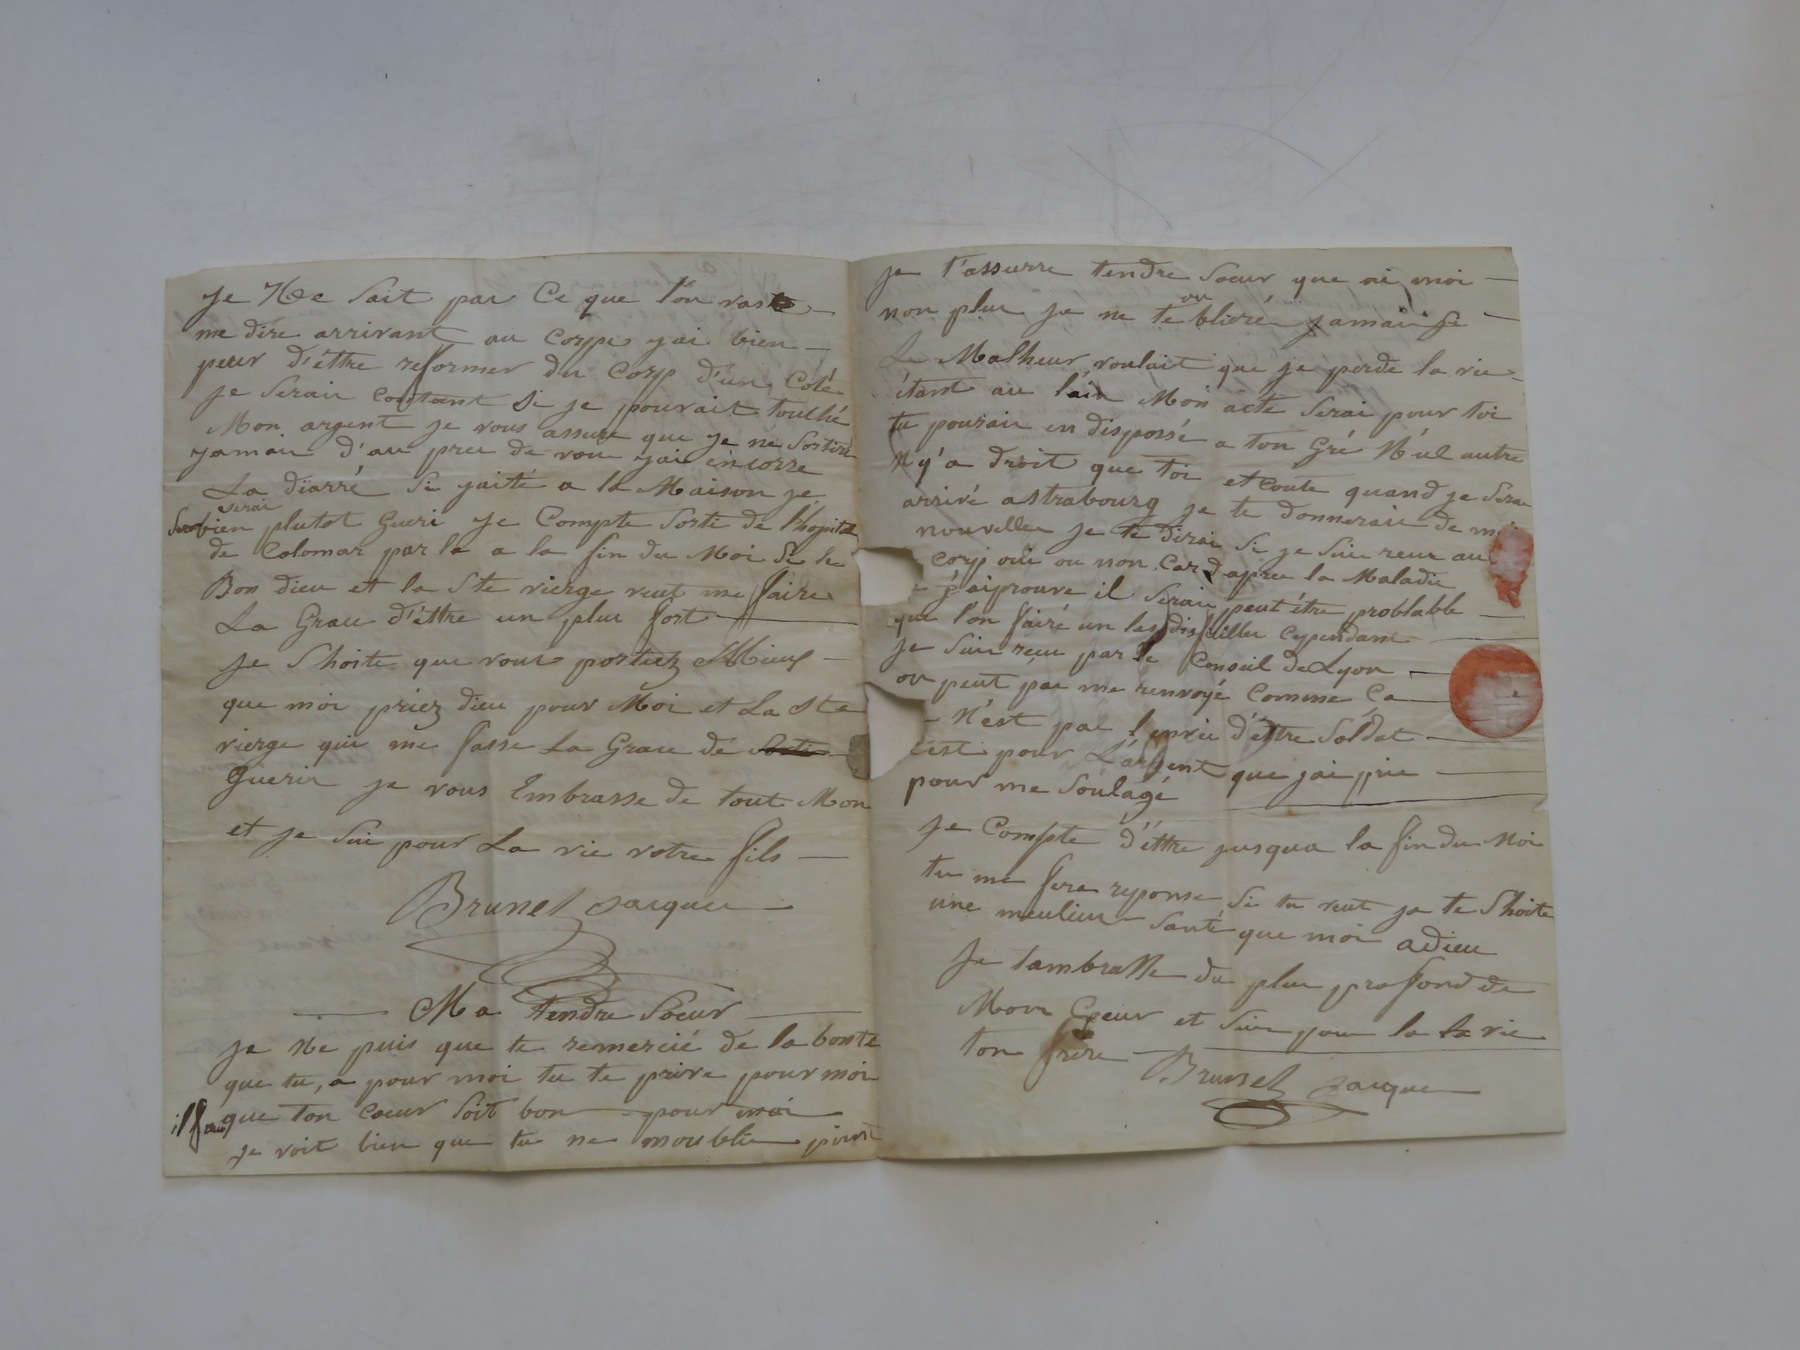 Je Ne Sait pas Ce que l'on vas
me dire arrivant au Corps jai bien
peur d'êttre reformer du Corp d'un Coté
je Serais Contant Si je pouvait touché
Mon argent je vous assure que je ne Sortira
jamais d'au pres de vous jai encorre
La diarré Si jaité a la Maison je
Serai
bien plutot Gueri Je Compte Sorti de l'hopital
de Colomar par la a la fin du Moi Si le
Bon dieu et la Ste vierge veut me faire
La Grace d'êttre un plus fort
Je Shoite que vous portiez Mieux
que moi priez dieu pour Moi et La Ste
vierge qui me fasse La Grace de
Guerir je vous Embrasse de tout Mon
et je Sui pour La vie votre fils
Brunet Jacques
Ma tendre Soeur
Je Ne puis que te remercié de la bonté
que tu, a pour moi tu te prive pour moi
il faut que ton Coeur Soit bon pour moi
Je voit bien que tu ne moublie point
Je t'assurre tendre Soeur que ni moi
ou
non plus je ne te blieré jamais Si
Le Malheur voulait que je perde la vie
étant au Mon acte Serai pour toi
tu pourais en dispossé a ton Gré Nul autre
N'y'a droit que toi et coute quand je Serai
arrivé astrabourg je te donnerais de mes
nouvelles Je te dirai Si je Suis recu au
Corp oui ou non Car d'apres la Maladie
j'aiprouve il Serais peut être problable
que l'on Cependant
Je Suis reçu par le Conseil de Lyon
on peut pas me renvoyé Comme Ça
N'est pas l'envie d'êttre Soldat
c'est pour L'argent que jai pris
pour me Soulagé
Je Compte d'êttre jusqua la fin du Moi
tu me fera reponse Si tu veut je te Shoite
une meulieur Santé que moi adieu
Je tambrasse du plus profond de
Mon Coeur et Suis pour la vie
ton frère
Brunet Jacques